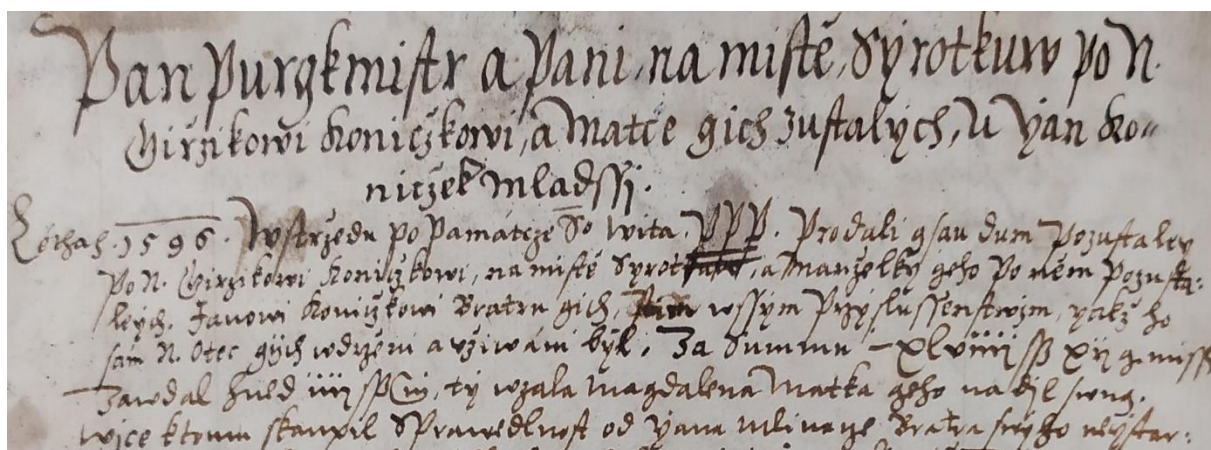 Pan Purgkmistr a Pani, na mistě, Syrotkuw po N.
Girzikowi Koniczkowi, a Matce gich zustalych, U Yan Ko=
niczek Mladssj.
Létha 1596. W strzedu po Památcze So Wita, PPP. Prodali gsau dum Pozustaley
po N. Girzikowi Koniczkowi, na mistě Syrotkuw, a Manželky geho po něm Pozusta:
leych. Janowi Koniczkowi Bratru gich, wssym Przyslussenstwim, yakž ho
sám N. Otec gych w drženi a vžiwáni býl. Za Summu xlviiij ss xij g. miss
Zawdal hned iiij ss, ty wzala Magdalena Matka geho na djl swug.
Wjce k tomu skaupil Sprawedlnost od Yana Mlinarze Bratra swýho neystar: